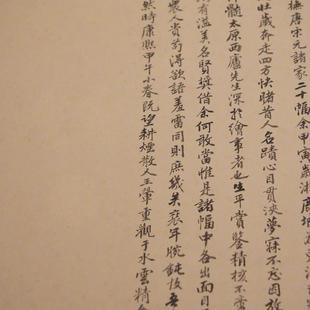 撫唐宋元諸家二十幀余甲寅歲
壯歲奔走四方快睹昔人名蹟心目貫浹夢寐不忘因放
神髓太原西廬先生深於繪事者也生平賞鑒精核不
有溢美名賢獎借余何敢當惟是諸幅中各出面目
襄人貲苟得欲語羞雷同則庶幾矣衰年腕鈍技
然時康熙甲午小春既望耕煙散人王翬重觀于水雲精舍